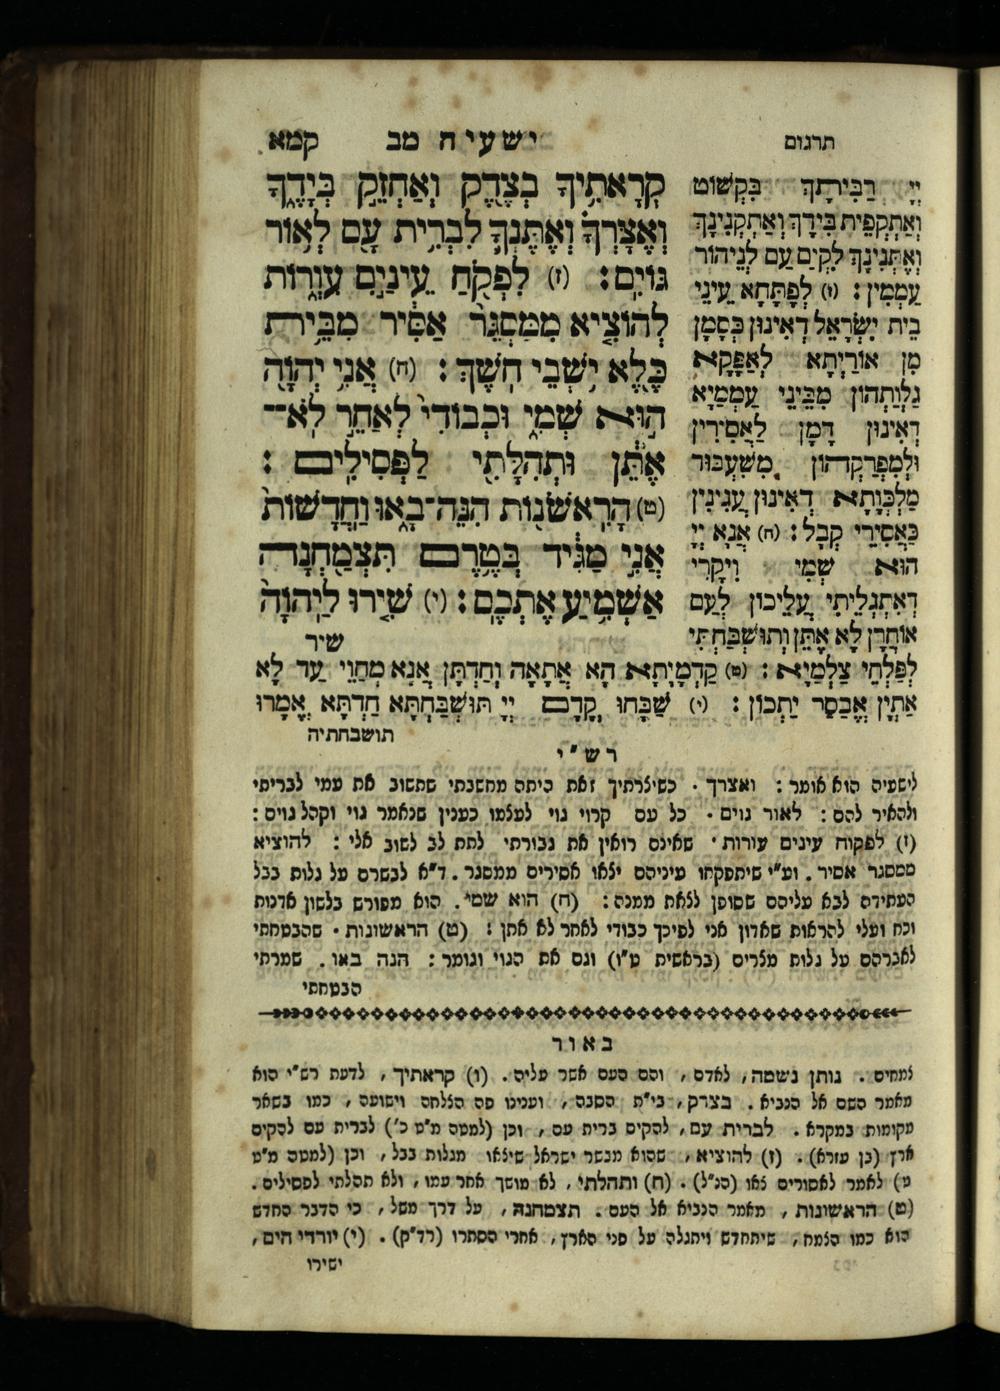 תרגום
ישעיה מב קמא
קְרָאתִ֥יךָֽ בְצֶ֖דֶק וְאַחְזֵ֣ק בְּיָדֶ֑ךָ
וְאֶצָּרְךָ֗ וְאֶתֶּנְךָ֛ לִבְרִ֥ית עָ֖ם לְא֥וֹר
גּוֹיִֽם: (ז) לִפְקֹ֖חַ עֵינַ֣יִם עִוְר֑וֹת
לְהוֹצִ֤יא מִמַּסְגֵּר֙ אַסִּ֔יר מִבֵּ֥ית
כֶּ֖לֶא יֹ֥שְׁבֵי חֹֽשֶׁךְ: (ח) אֲנִ֥י יְהוָֹ֖ה
ה֣וּא שְׁמִ֑י וּכְבוֹדִי֙ לְאַחֵ֣ר לֹֽא־
אֶתֵּ֔ן וּתְהִלָּתִ֖י לַפְּסִילִֽים:
(ט) הָרִֽאשֹׁנ֖וֹת הִנֵּה־בָ֑אוּ וַחֲדָשׁוֹת֙
אֲנִ֣י מַגִּ֔יד בְּטֶ֥רֶם תִּצְמַ֖חְנָה
אַשְׁמִ֥יעַ אֶתְכֶֽם: (י) שִׁ֤ירוּ לַֽיהוָֹה֙
שיר
יְיָ רַבִּיתָךְ בִּקְשׁוֹט
וְאַתְקֵפִית בִּידָךְ וְאַתְקֵנִינָךְ
וְאֶתְּנִינָךְ לִקְיַם עַם לִנְיהוֹר
עַמְמִין: (ז) לְפַתָּחָא עֵינֵי
בֵית יִשְׂרָאֵל דְאִינוּן כְּסָמָן
מִן אוֹרַיְתָא לְאַפָּקָא
גַלְוַתְהוֹן מִבֵּינֵי עַמְמַיָא
דְאִינוּן דָמָן לַאֲסִירִין
וּלְמִפְרַקְהוֹן מִשִׁעְבּוּד
מַלְכְּוָתָא דְאִינוּן עֲנִינִין
כַּאֲסִירֵי קְבָל: (ח) אֲנָא יְיָ
הוּא שְׁמִי וִיקָרִי
דְאִתְגְלֵיתִי עֲלֵיכוֹן לְעַם
אוֹחֳרָן לָא אֶתֵּן וְתוּשְׁבַּחְתִּי
לְפָלְחֵי צַלְמַיָא: (ט) קַדְמָיָתָא הָא אֲתָאָה וַחֲדְתָן אֲנָא מְחַוֵי עַד לָא
אַתְיָן אֲבַסַר יַתְכוֹן: (י) שַׁבָּחוּ קֳדָם יְיָ תּוּשְׁבַּחְתָּא חַדְתָּא אֱמָרוּ
תושבחתיה
רש״י
לישעיה הוא אומר: ואצרך. כשיצרתיך זאת היתה מחשבתי שתשוב את עמי לבריתי
ולהאיר להם: לאור גוים. כל עם קרוי גוי לעצמו כענין שנאמר גוי וקהל גוים:
(ז) לפקוח עינים עורות. שאינם רואין את גבורתי לתת לב לשוב אלי: להוציא
ממסגר אסיר. וע״י שיתפקחו עיניהם יצאו אסירים ממסגר. ד״א לבשרם על גלות בבל
העתידה לבא עליהם שסופן לצאת ממנה: (ח) הוא שמי. הוא מפורש בלשון אדנות
וכח ועלי להראות שאדון אני לפיכך כבודי לאחר לא אתן: (ט) הראשונות. שהבטחתי
לאברהם על גלות מצרים (בראשית ט״ו) וגם את הגוי וגומר: הנה באו. שמרתי
הבטחתי
באור
צמחים. נותן נשמה, לאדם, והם העם אשר עליה. (ו) קראתיך, לדעת רש״י הוא
מאמר השם אל הנביא. בצדק, בי״ת הסבה, וענינו פה הצלחה וישועה, כמו בשאר
מקומות במקרא. לברית עם, להקים ברית עם, וכן (למטה מ״ט כ׳) לברית עם להקים
ארץ (בן עזרא). (ז) להוציא, שהוא מבשר ישראל שיצאו מגלות בבל, וכן (למטה מ״ט
ט) לאמר לאסורים צאו (הנ״ל). (ח) ותהלתי, לא מושך אחר עמו, ולא תהלתי לפסילים.
(ט) הראשונות, מאמר הנביא אל העם. תצמחנה, על דרך משל, כי הדבר החדש
הוא כמו הצמח, שיתחדש ויתגלה על פני הארץ, אחרי הסתרו (רד״ק). (י) יורדי הים,
ישירו